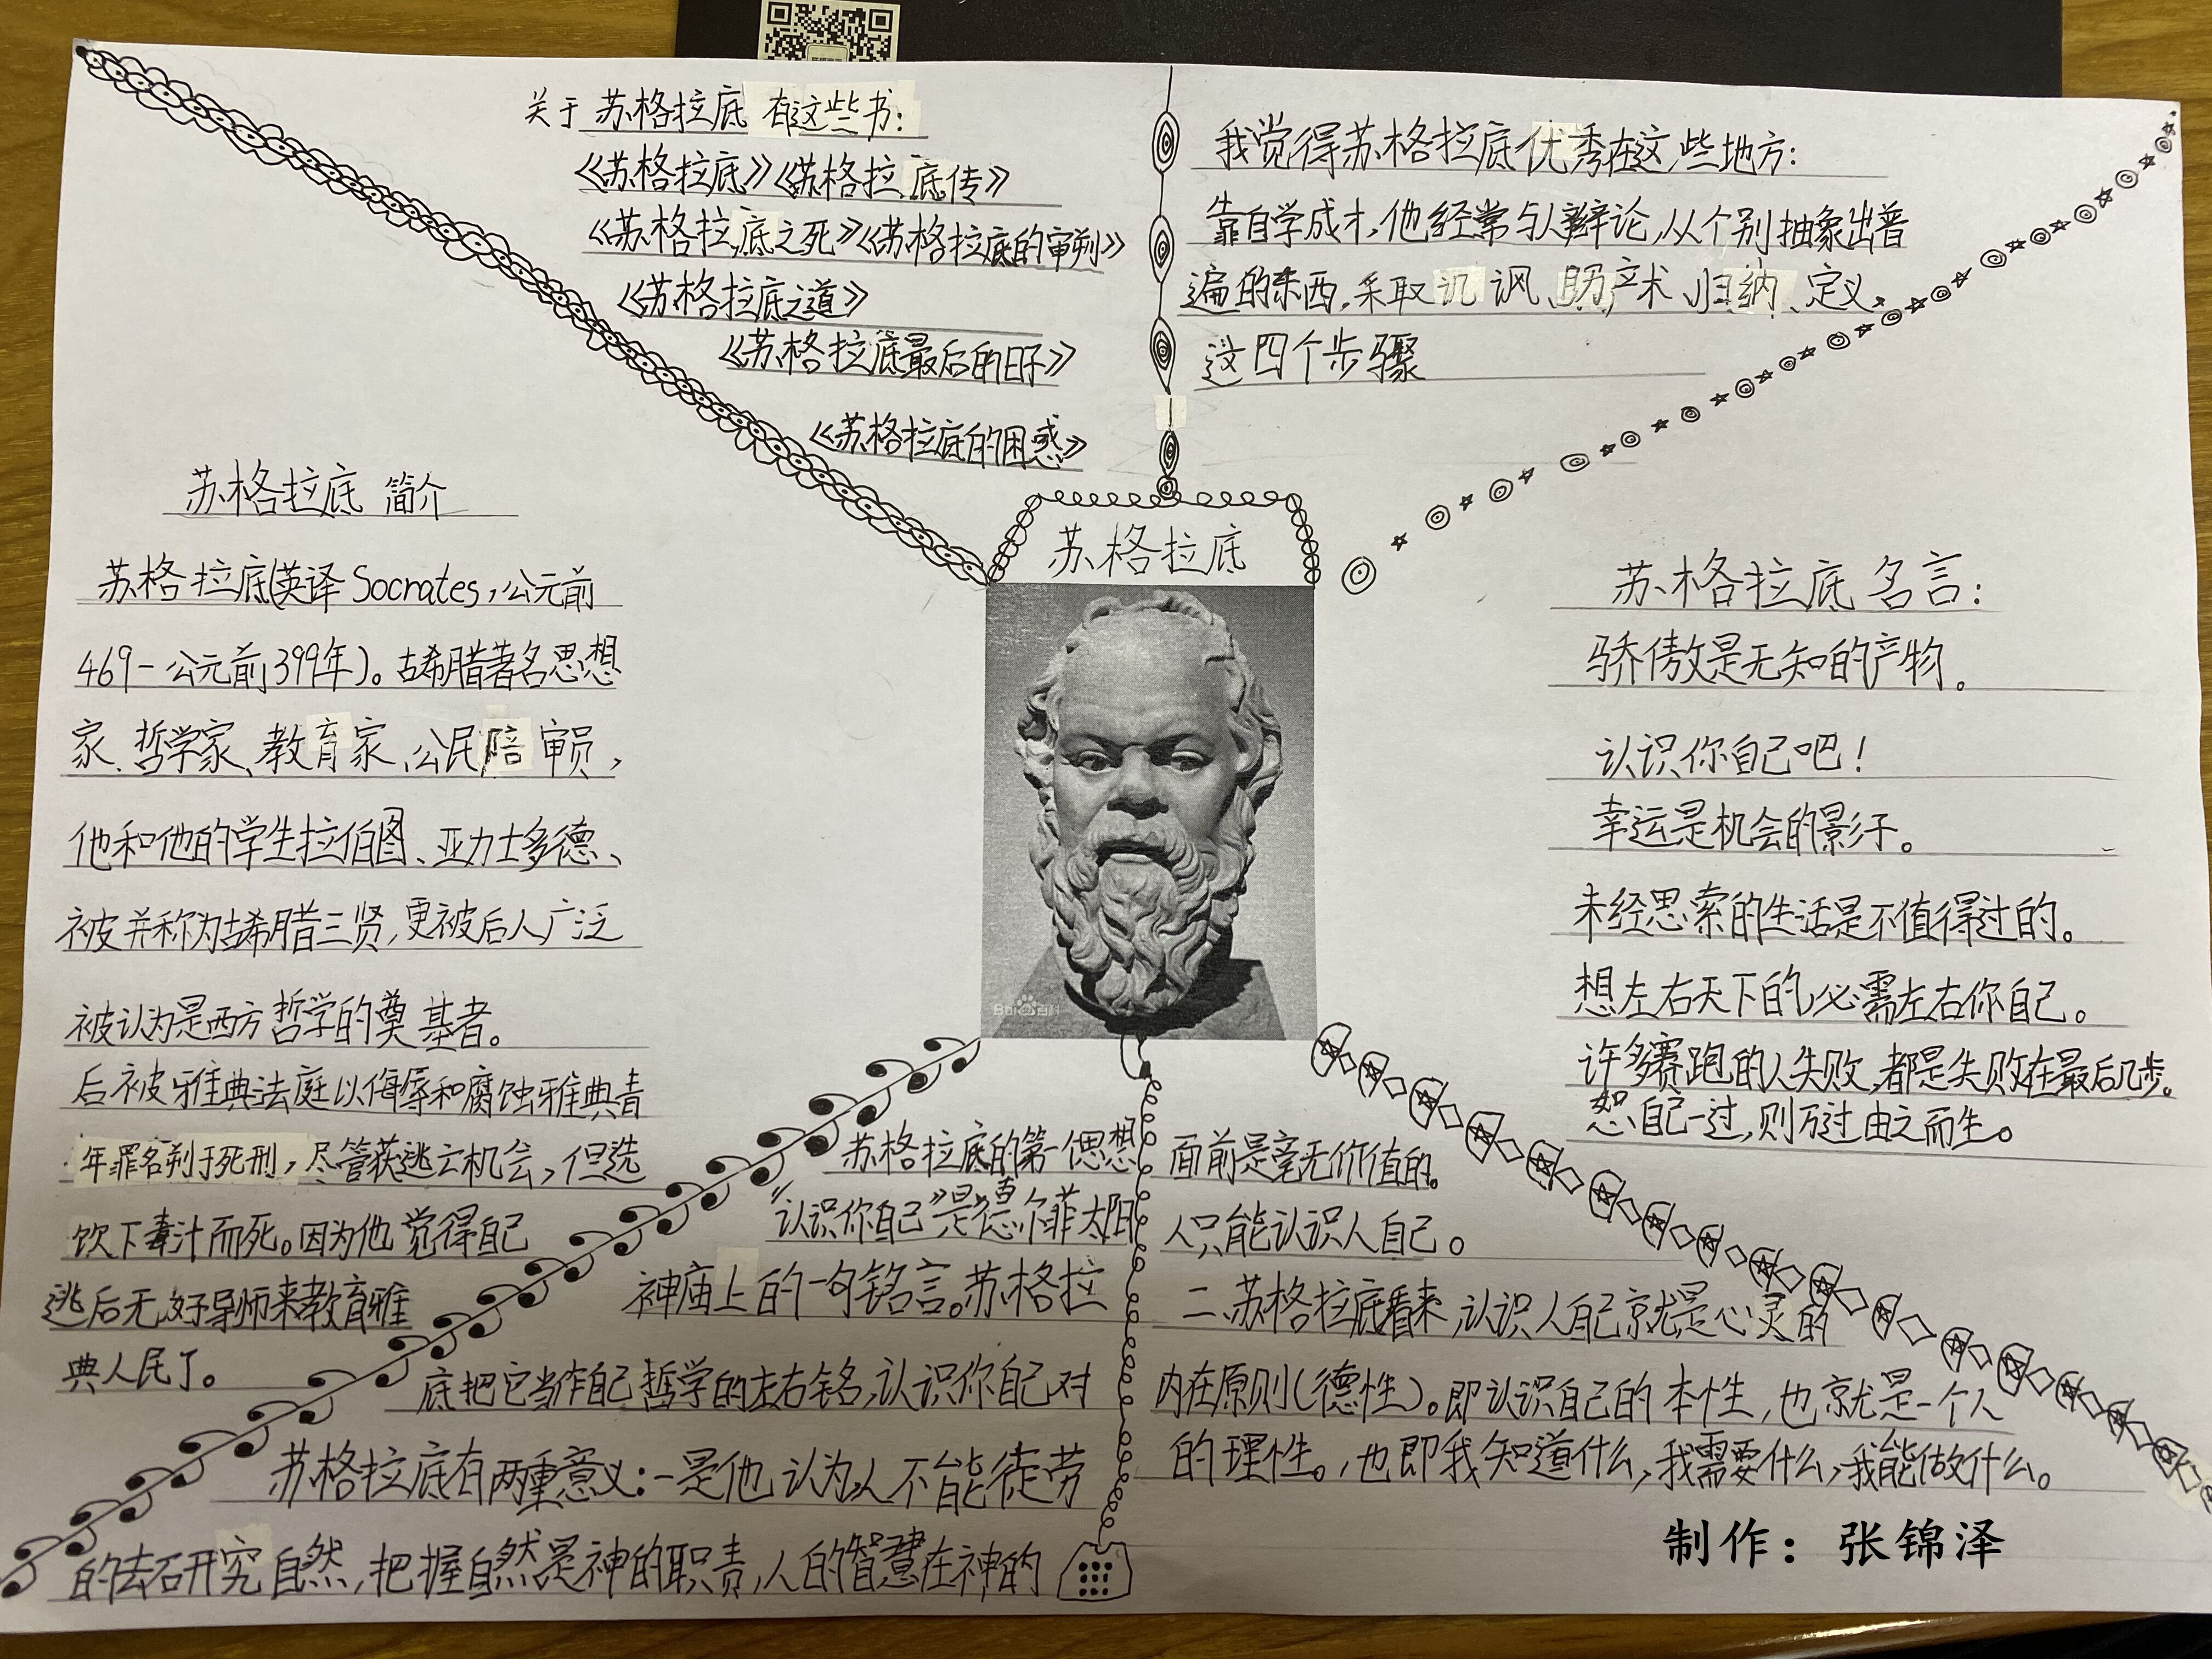 关于苏格拉底有这些书：
《苏格拉底》《苏格拉底传》
《苏格拉底之死》《苏格拉底的审判》
《苏格拉底之道》
《苏格拉底最后的日子》
《苏格拉底的困惑》
我觉得苏格拉底优秀在这些地方：
靠自学成才，他经常与人辩论，从个别抽象出普
遍的东西，采取讥讽、助产术、归纳、定义，
这四个步骤
苏格拉底 简介
苏格拉底(英译Socrates，公元前
469-公元前399年)。古希腊著名思想
家、哲学家、教育家、公民陪审员，
他和他的学生拉伯图、亚力士多德、
被并称为古希腊三贤，更被后人广泛
被认为是西方哲学的奠基者。
后被雅典法庭以侮辱和腐蚀雅典青
年罪名判于死刑，尽管获逃亡机会，但选
饮下毒汁而死。因为他觉得自己
逃后无好导师来教育雅
典人民了。
苏格拉底
Bai百科
苏格拉底名言：
骄傲是无知的产物。
认识你自己吧！
幸运是机会的影子。
未经思索的生活是不值得过的。
想左右天下的，必需左右你自己。
许多赛跑的人失败，都是失败在最后几步。
恕自己一过，则万过由之而生。
苏格拉底的第一思想
“认识你自己”是德尔菲太阳
神庙上的一句铭言。苏格拉
底把它当作自己哲学的左右铭，认识你自己对
苏格拉底有两重意义：一是他认为人不能徒劳
的去研究自然，把握自然是神的职责，人的智慧在神的
面前是毫无价值的。
人只能认识人自己。
二、苏格拉底看来，认识人自己就是心灵的
内在原则(德性)。即认识自己的本性，也就是一个人
的理性。，也即我知道什么，我需要什么，我能做什么。
制作：张锦泽